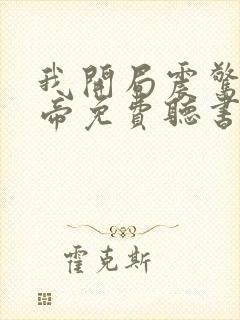 我開局震驚
帝免費聽書
霍克斯